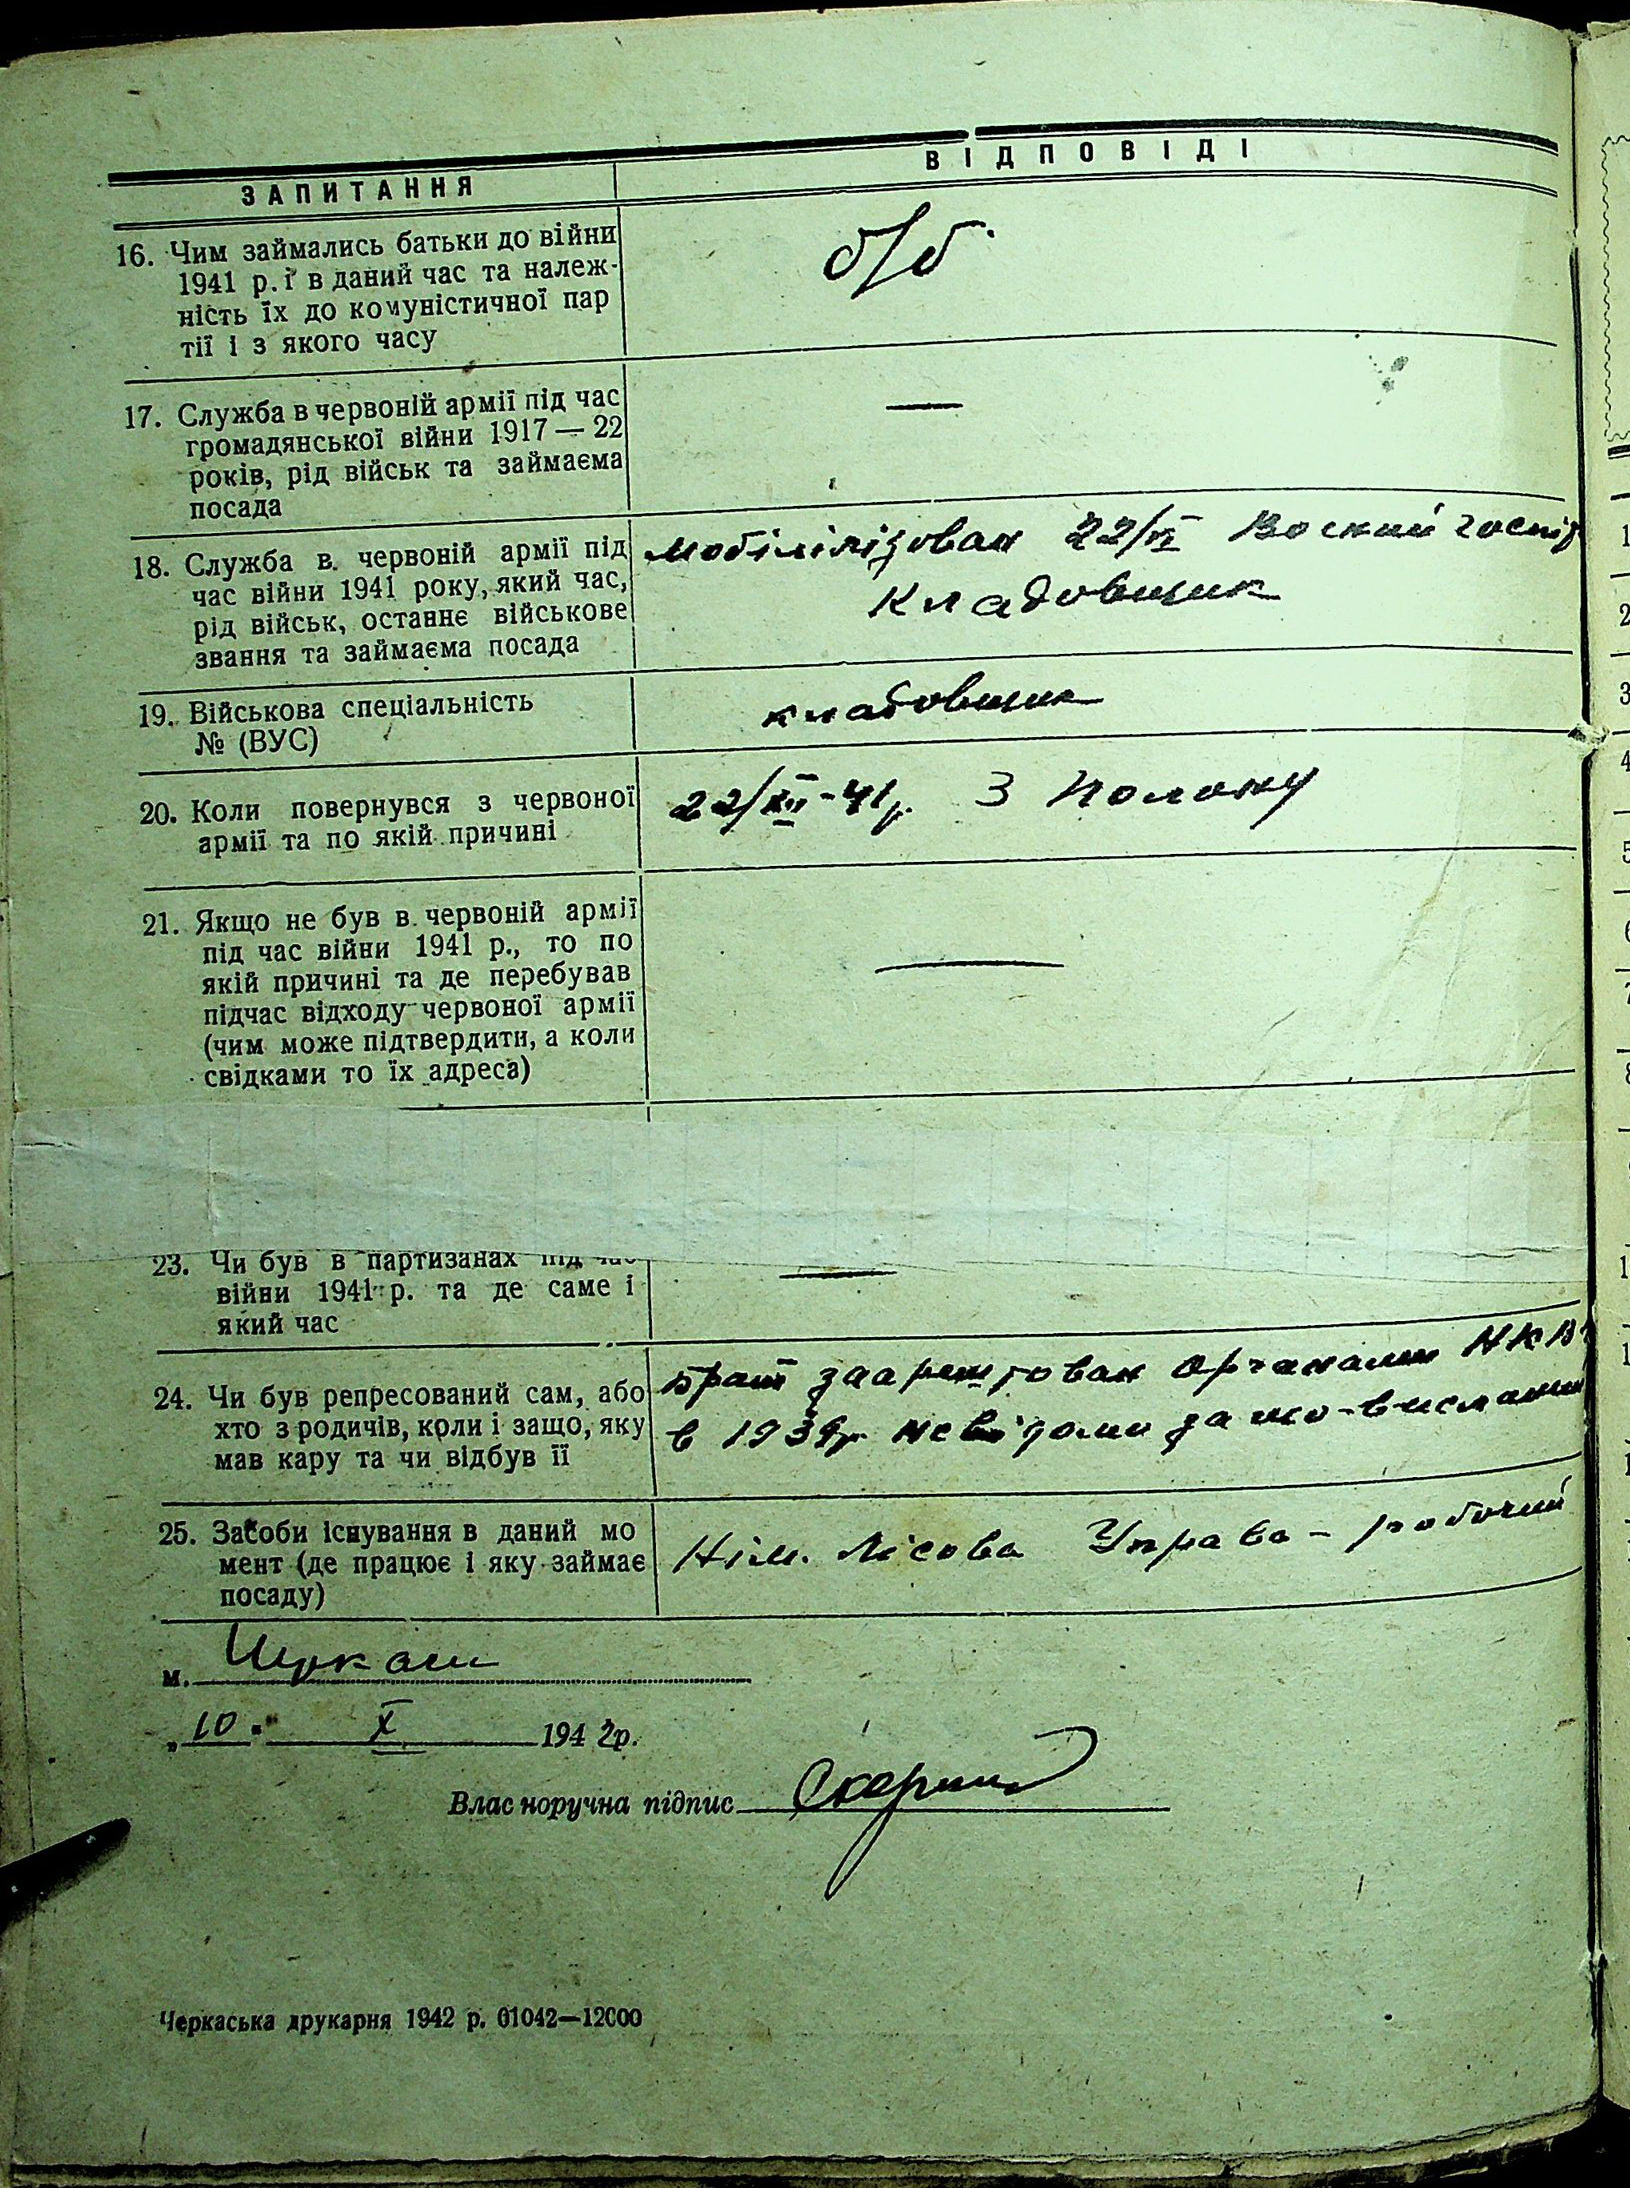 ЗАПИТАННЯ
ВІДПОВІДІ
16. Чим займались батьки до війни
1941 р. і в даний час та належ-
ність їх до комуністичної пар
тії і з якого часу
б/б.
17. Служба в червоній армії під час
громадянської війни 1917 — 22
років, рід військ та займаєма
посада
—
18. Служба в червоній армії під
час війни 1941 року, який час,
рід військ, останнє військове
звання та займаєма посада
мобілілізован 22/VI госпіт
Кладовщик
19. Військова спеціальність
№ (ВУС)
кладовщик
20. Коли повернувся з червоної
армії та по якій причині
22/XII-41р. З Полону
21. Якщо не був в червоній армії
під час війни 1941 р., то по
якій причині та де перебував
підчас відходу червоної армії
(чим може підтвердити, а коли
свідками то їх адреса)
—
23. Чи був в партизанах під час
війни 1941 р. та де саме і
який час
—
24. Чи був репресований сам, або
хто з родичів, коли і защо, яку
мав кару та чи відбув її
брат заарештован Органами НКВ
в невідомо за що -
25. Засоби існування в даний мо
мент (де працює і яку займає
посаду)
Нім. Лісова Управа - робочий
м. Черкаси
„10" X 1942р.
Власноручна підпис
Черкаська друкарня 1942 р. 01042—12000